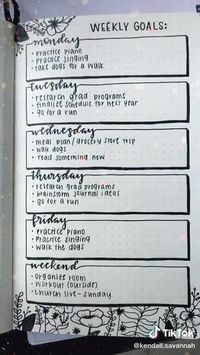 WEEKLY GOALS:
monday
• PRACTICE PIANO
• PRACTICE SINGING
• TAKE DOGS FOR A WALK
tuesday
• RESEARCH GRAD PROGRAMS
• FINALIZE SCHEDULE FOR NEXT YEAR
• GO FOR A RUN
wednesday
• MEAL PLAN / GROCERY STORE TRIP
• WALK DOGS
• READ SOMETHING NEW
thursday
• RESEARCH GRAD PROGRAMS
• BRAINSTORM JOURNAL IDEAS
• GO FOR A RUN
friday
• PRACTICE PIANO
• PRACTICE SINGING
• WALK THE DOGS
weekend
• ORGANIZE ROOM
• WORKOUT (OUTSIDE)
• CHURCH LIVE-SUNDAY
TikTok
@kendall.savannah